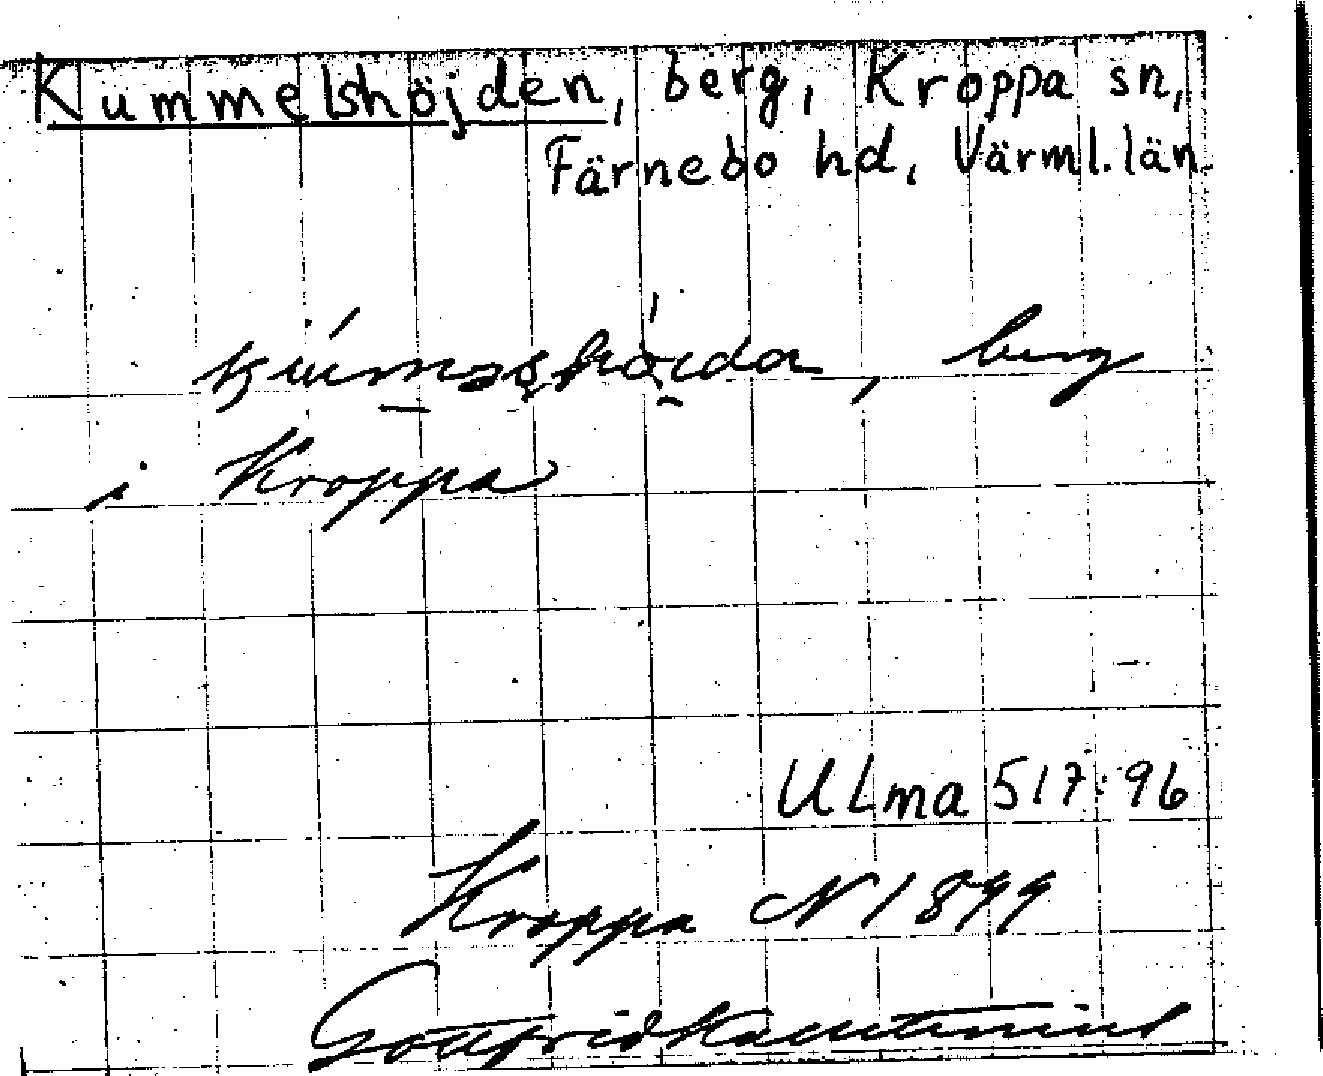 Kummelshöjden, berg, Kroppa sn,
Färnebo hd, Värml. län
berg
i Kroppa
ULma 517:96
Kroppa N 1899
Gottfrid Kallstenius